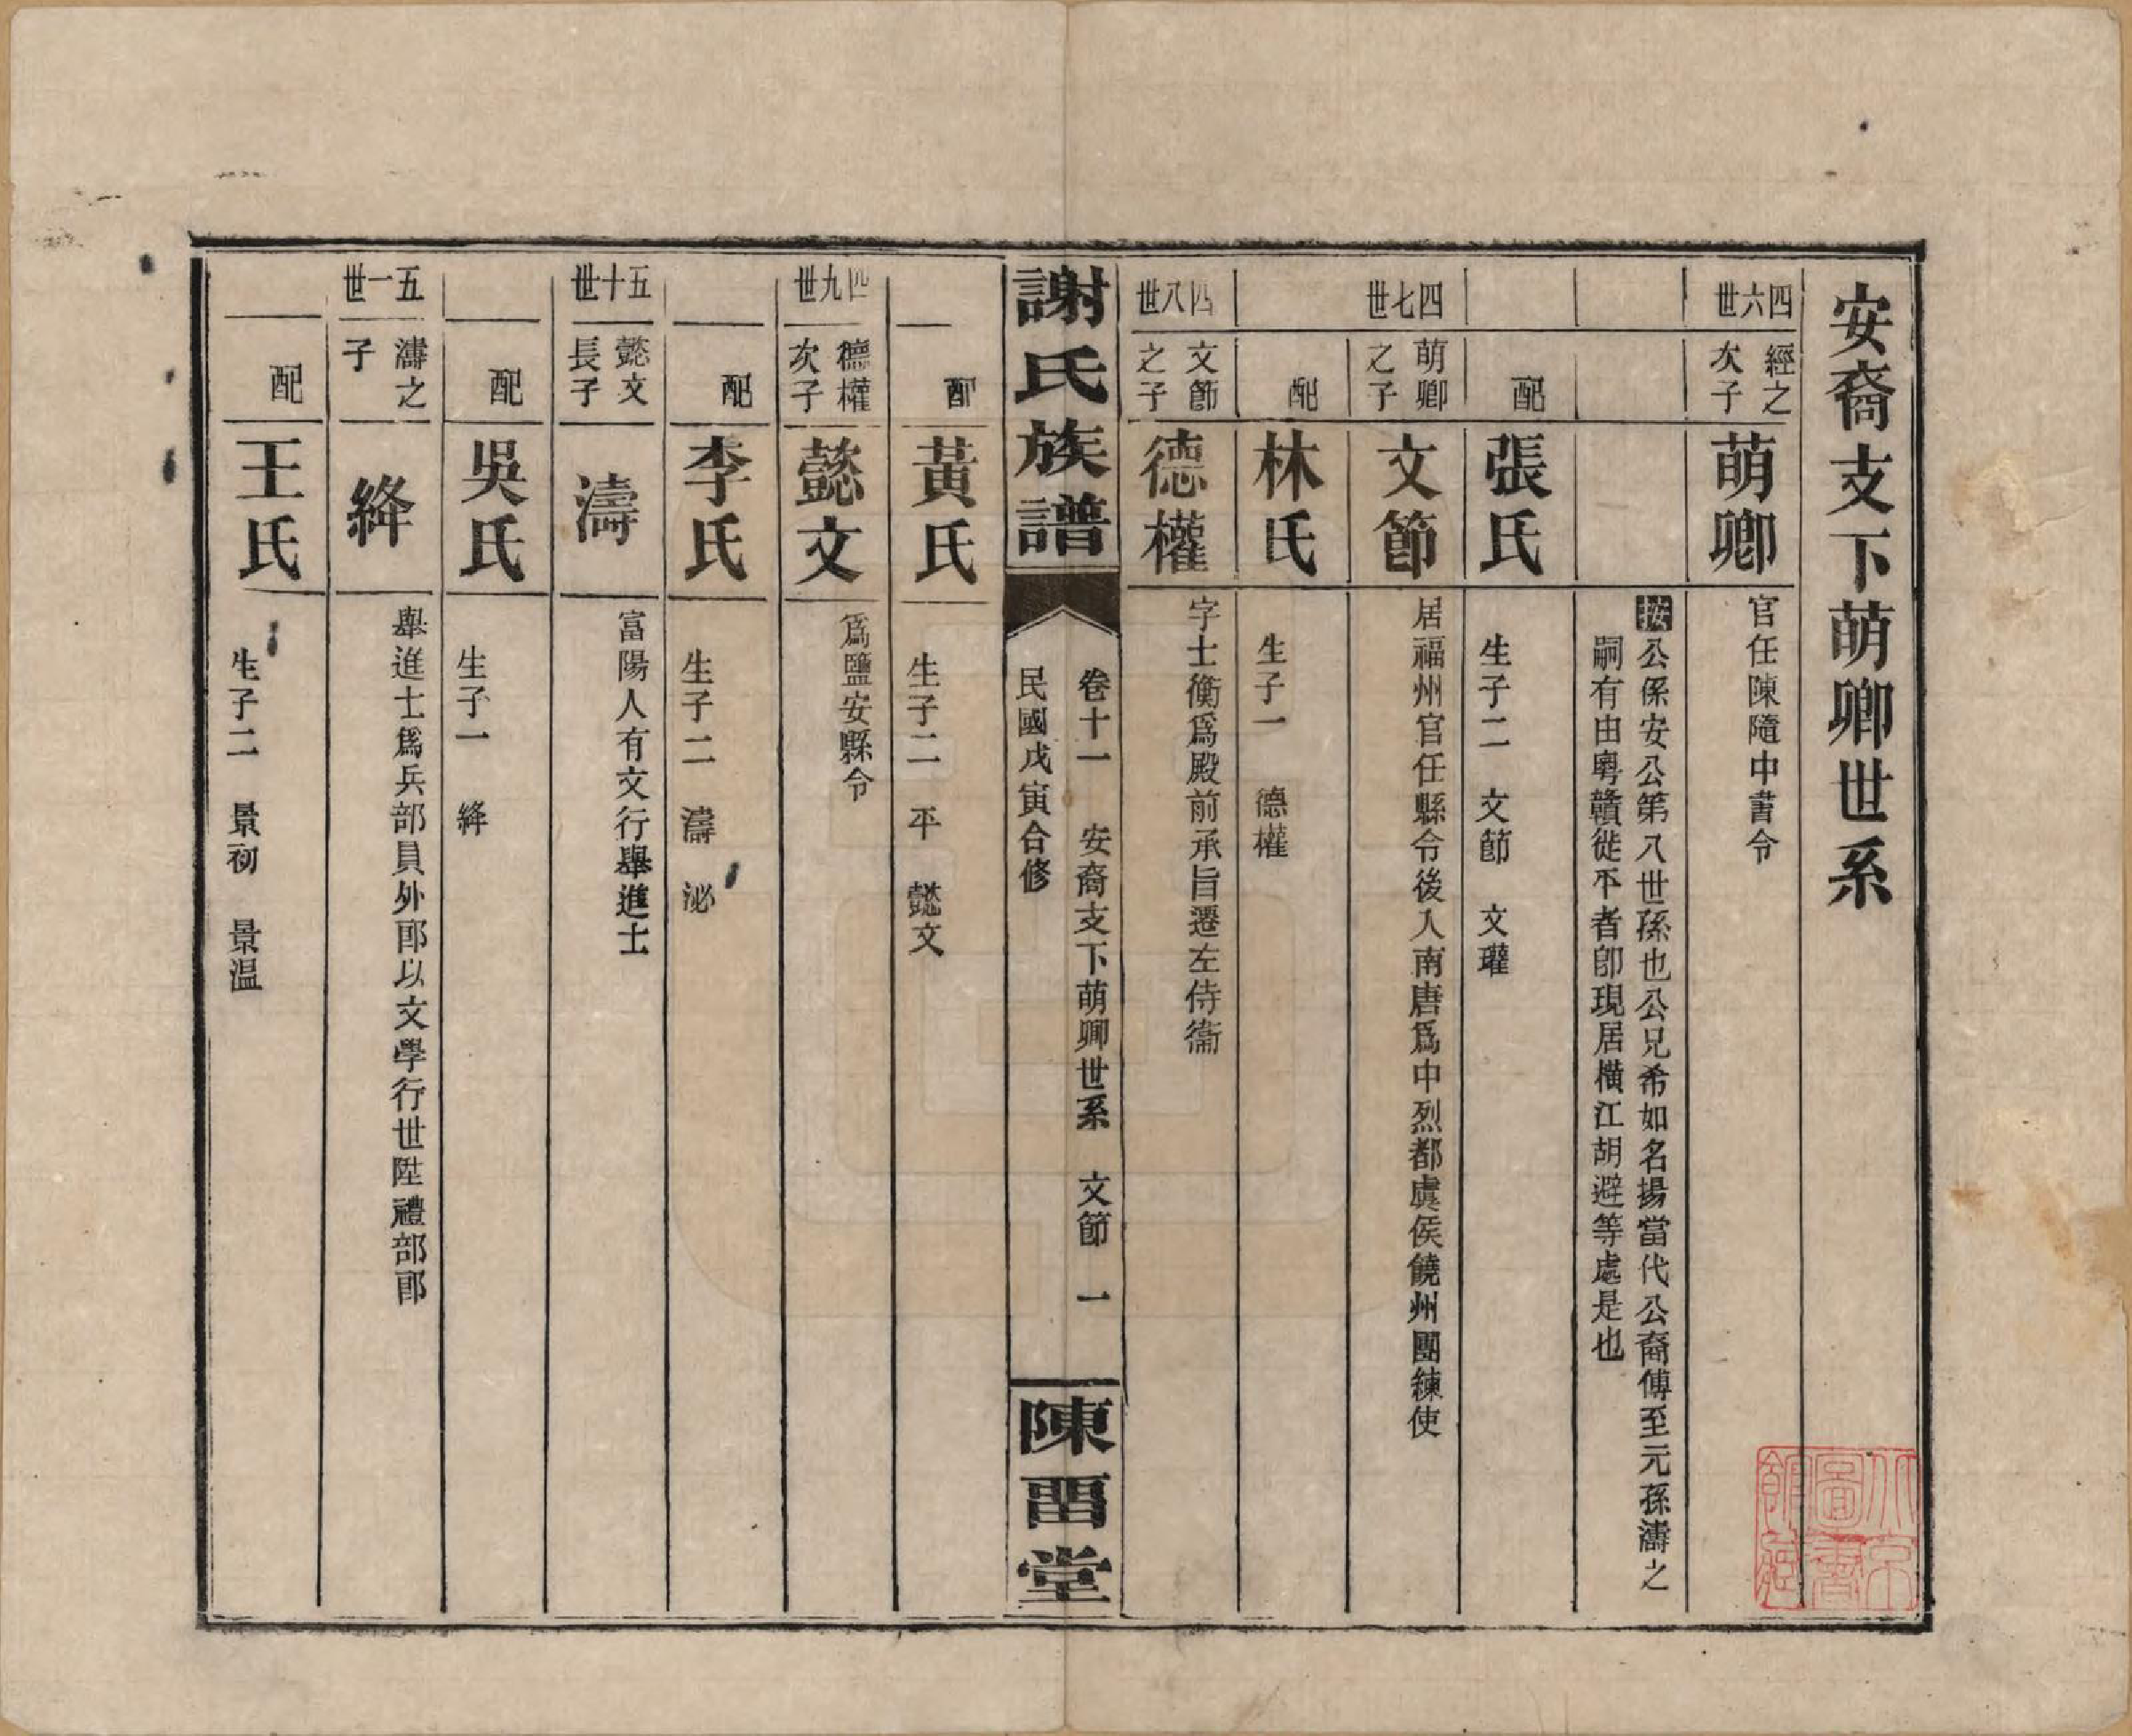 安裔支下萌卿世系
四六世
經之次子
萌卿
官任陳隨中書令
按公係安公第八世孫也公兄希如名揚當代公裔傅至元孫濤之
嗣有由粵贛徙不者卽現居橫江胡避等處是也
配
張氏
生子二 文節 文瓘
四七世
萌卿之子
文節
居福州官任縣令後人南唐爲中烈都虞侯饒州團練使
配
林氏
生子一 德權
四八世
文節之子
德權
字士衡爲殿前承旨遷左侍衞
謝氏族譜
卷十一 安裔支下萌卿世系 文節 一
民國戊寅合修
陳畱堂
配
黃氏
生子二 平 懿文
四九世
德權次子
懿文
爲鹽安縣令
配
李氏
生子二 濤 泌
五十世
懿文長子
濤
富陽人有文行舉進士
配
吳氏
生子一 絳
五一世
濤之子
絳
舉進士爲兵部員外郎以文學行世陞禮部郎
配
王氏
生子二 景初 景温